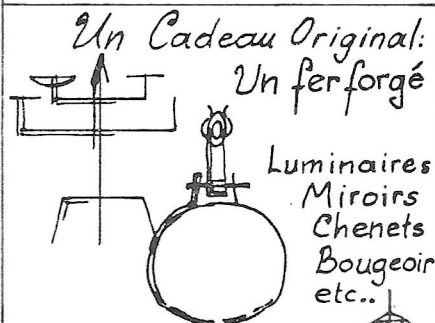 Un Cadeau Original:
Un fer forgé
Luminaires
Miroirs
Chenets
Bougeoir
etc..